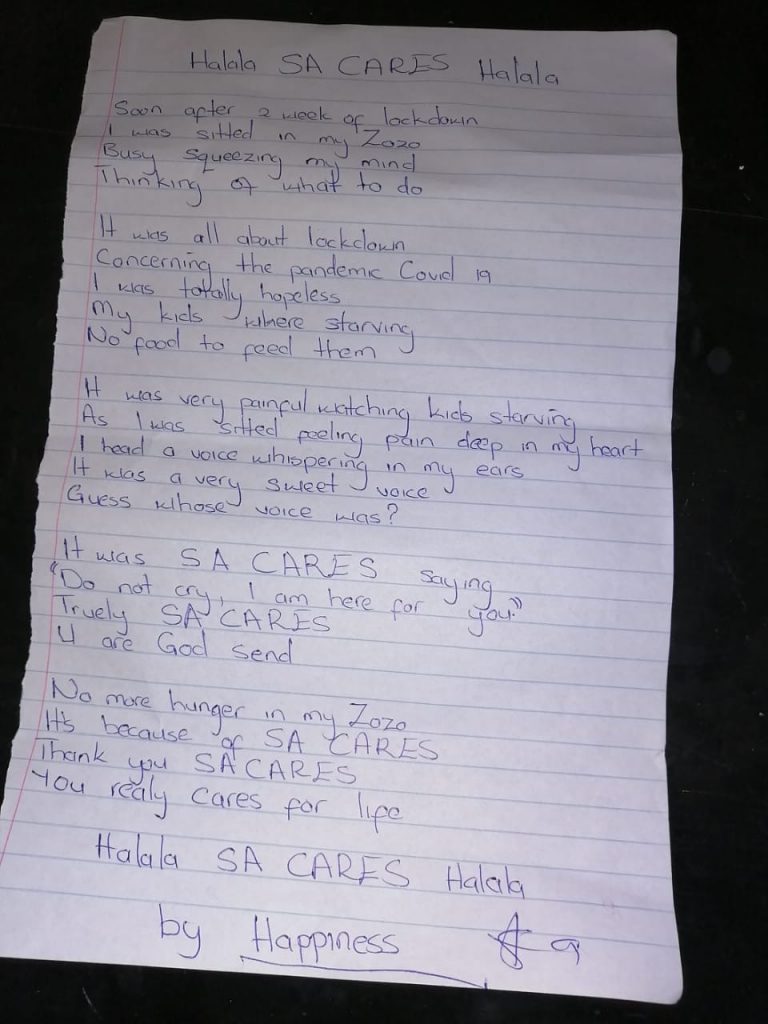 Halala SA CARES Halala
Soon after 2 week of lockdown
I was sitted in my Zozo
Busy squeezing my mind
Thinking of what to do
It was all about lockdown
Concerning the pandemic Covid 19
I was totally hopeless
My kids where starving
No food to feed them
It was very painful watching kids starving
As I was sitted feeling pain deep in my heart
I head a voice whispering in my ears
It was a very sweet voice
Guess whose voice was?
It was SA CARES saying
"Do not cry, I am here for you."
Truely SA CARES
U are God send
No more hunger in my Zozo
It's because of SA CARES
Thank you SA CARES
You realy cares for life
Halala SA CARES Halala
by Happiness